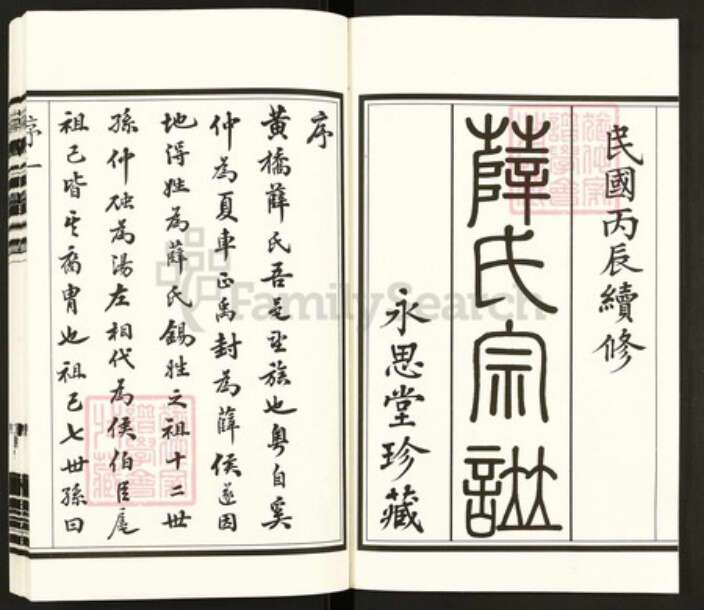 民國丙辰續修
薛氏宗譜
永思堂珍藏
序
黃橋薛氏吾邑望族也粵自奚
仲為夏車正禹封為薛侯遂因
地得姓為薛氏錫姓之祖十二世
孫仲虺為湯左相代為侯伯臣扈
祖己皆其裔胄也祖己七世孫曰
序一
FamilySearch